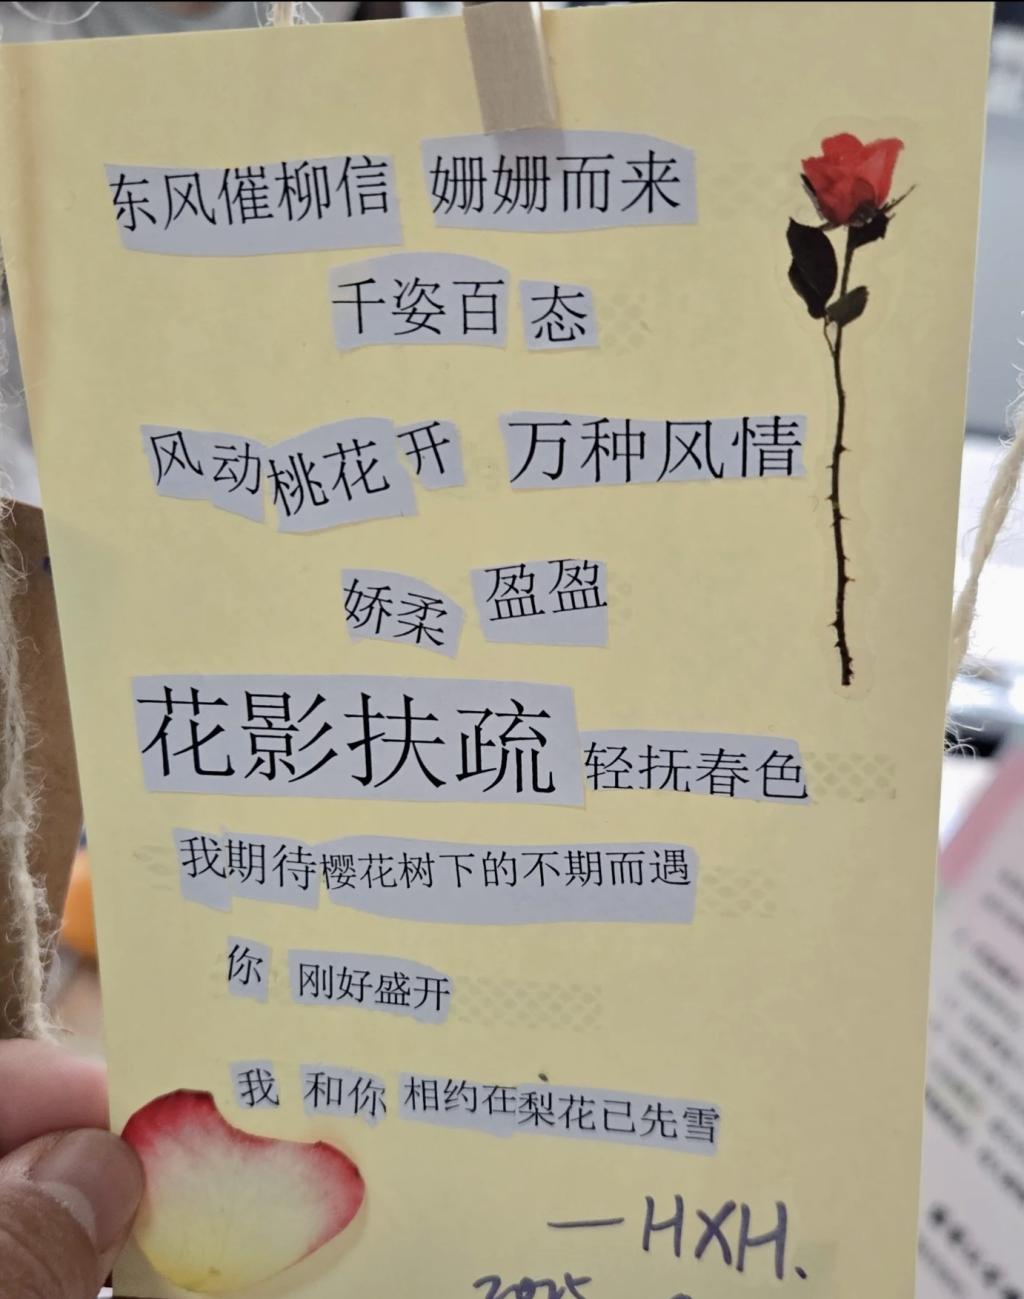 东风催柳信 姗姗而来
千姿百态
风动桃花开 万种风情
娇柔 盈盈
花影扶疏 轻抚春色
我期待樱花树下的不期而遇
你 刚好盛开
我 和你 相约在梨花己先雪
—HXH.
2025